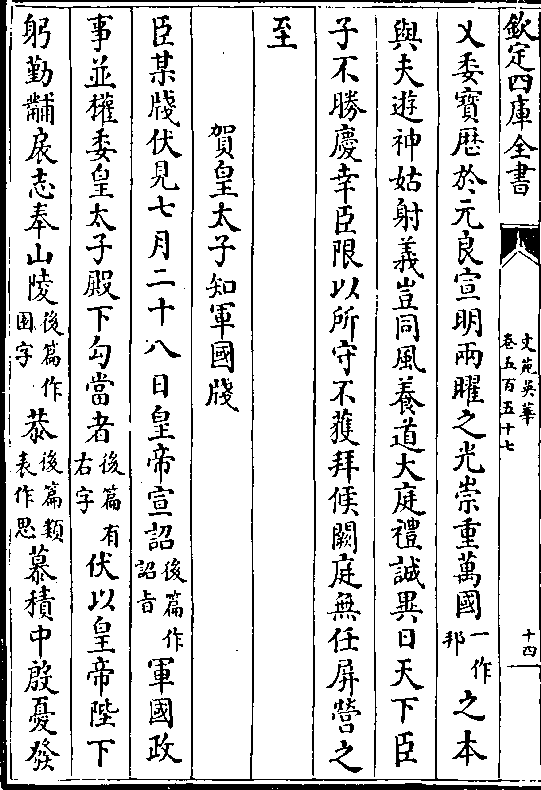 欽定四庫全書
文苑英華
卷五百五十七
十四
乂委寶厯於元良宣明兩曜之光崇重萬國一作邦之本
與夫遊神姑射義豈同風養道大庭禮誠異日天下臣
子不勝慶幸臣限以所守不獲拜候闕庭無任屏營之
至
賀皇太子知軍國牋
臣某牋伏見七月二十八日皇帝宣詔後篇作詔旨軍國政
事並權委皇太子殿下勾當者後篇有右字伏以皇帝陛下
躬勤黼扆志奉山陵後篇作園字恭後篇類表作思慕積中殷憂發